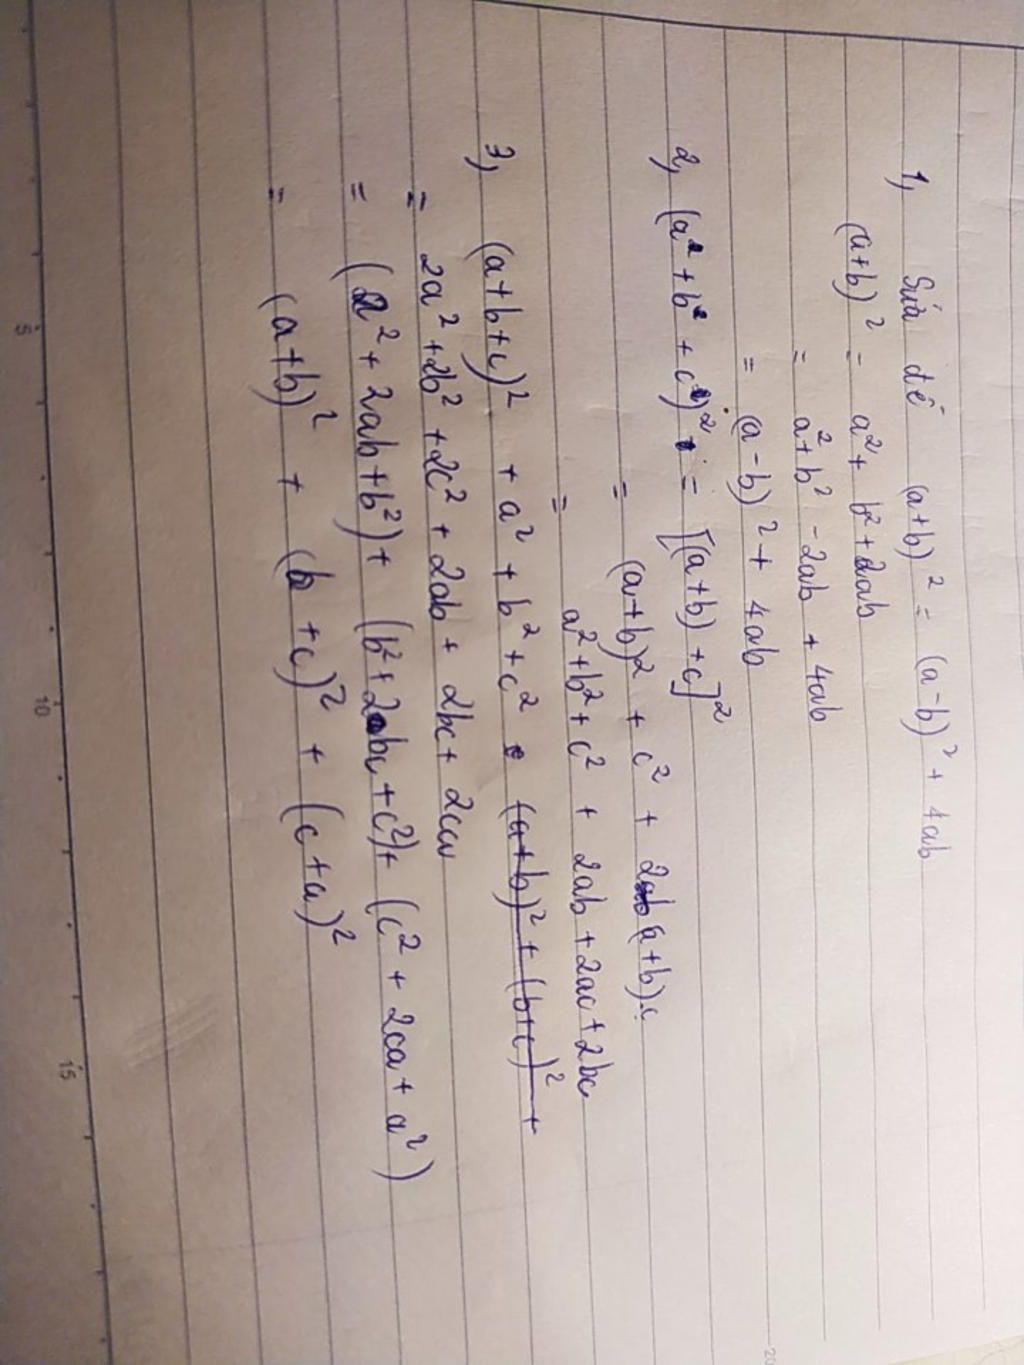 1, Sửa đề (a+b)² = (a-b)² + 4ab
(a+b)² = a² + b² + 2ab
= a² + b² - 2ab + 4ab
= (a-b)² + 4ab
2, (a² + b² + c²)² = [(a+b) + c]²
= (a+b)² + c² + 2(a+b).c
= a² + b² + c² + 2ab + 2ac + 2bc
3, (a+b+c)² + a² + b² + c² (a+b)² + (b+c)² +
= 2a² + 2b² + 2c² + 2ab + 2bc + 2ca
= (a² + 2ab + b²) + (b² + 2bc + c²) + (c² + 2ca + a²)
= (a+b)² + (b+c)² + (c+a)²
5
10
15
20